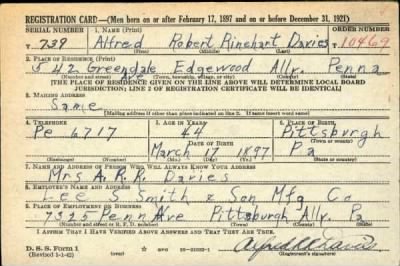 REGISTRATION CARD—(Men born on or after February 17, 1897 and on or before December 31, 1921)
SERIAL NUMBER 1. NAME (Print) ORDER NUMBER
T 739 Alfred Robert Rinehart Davies T 10469
(First) (Middle) (Last)
2. PLACE OF RESIDENCE (Print)
542 Greendale Ave Edgewood Ally. Penna
(Number and street) (Town, township, village, or city) (County) (State)
[THE PLACE OF RESIDENCE GIVEN ON THE LINE ABOVE WILL DETERMINE LOCAL BOARD
JURISDICTION; LINE 2 OF REGISTRATION CERTIFICATE WILL BE IDENTICAL]
3. MAILING ADDRESS
Same
[Mailing address if other than place indicated on line 2. If same insert word same]
4. TELEPHONE 5. AGE IN YEARS 6. PLACE OF BIRTH
Pe 6717 44 Pittsburgh
DATE OF BIRTH (Town or county)
March 17 1897 Pa
(Exchange) (Number) (Mo.) (Day) (Yr.) (State or country)
7. NAME AND ADDRESS OF PERSON WHO WILL ALWAYS KNOW YOUR ADDRESS
Mrs A. R. R. Davies
8. EMPLOYER'S NAME AND ADDRESS
Lee S Smith & Son Mfg Co
9. PLACE OF EMPLOYMENT OR BUSINESS
7325 Penn Ave Pittsburgh Ally. Pa
(Number and street or R. F. D. number) (Town) (County) (State)
I AFFIRM THAT I HAVE VERIFIED ABOVE ANSWERS AND THAT THEY ARE TRUE.
D. S. S. Form 1
(Revised 1-1-42) (over) GPO 16—21630-1 Alfred R R Davies
(Registrant's signature)